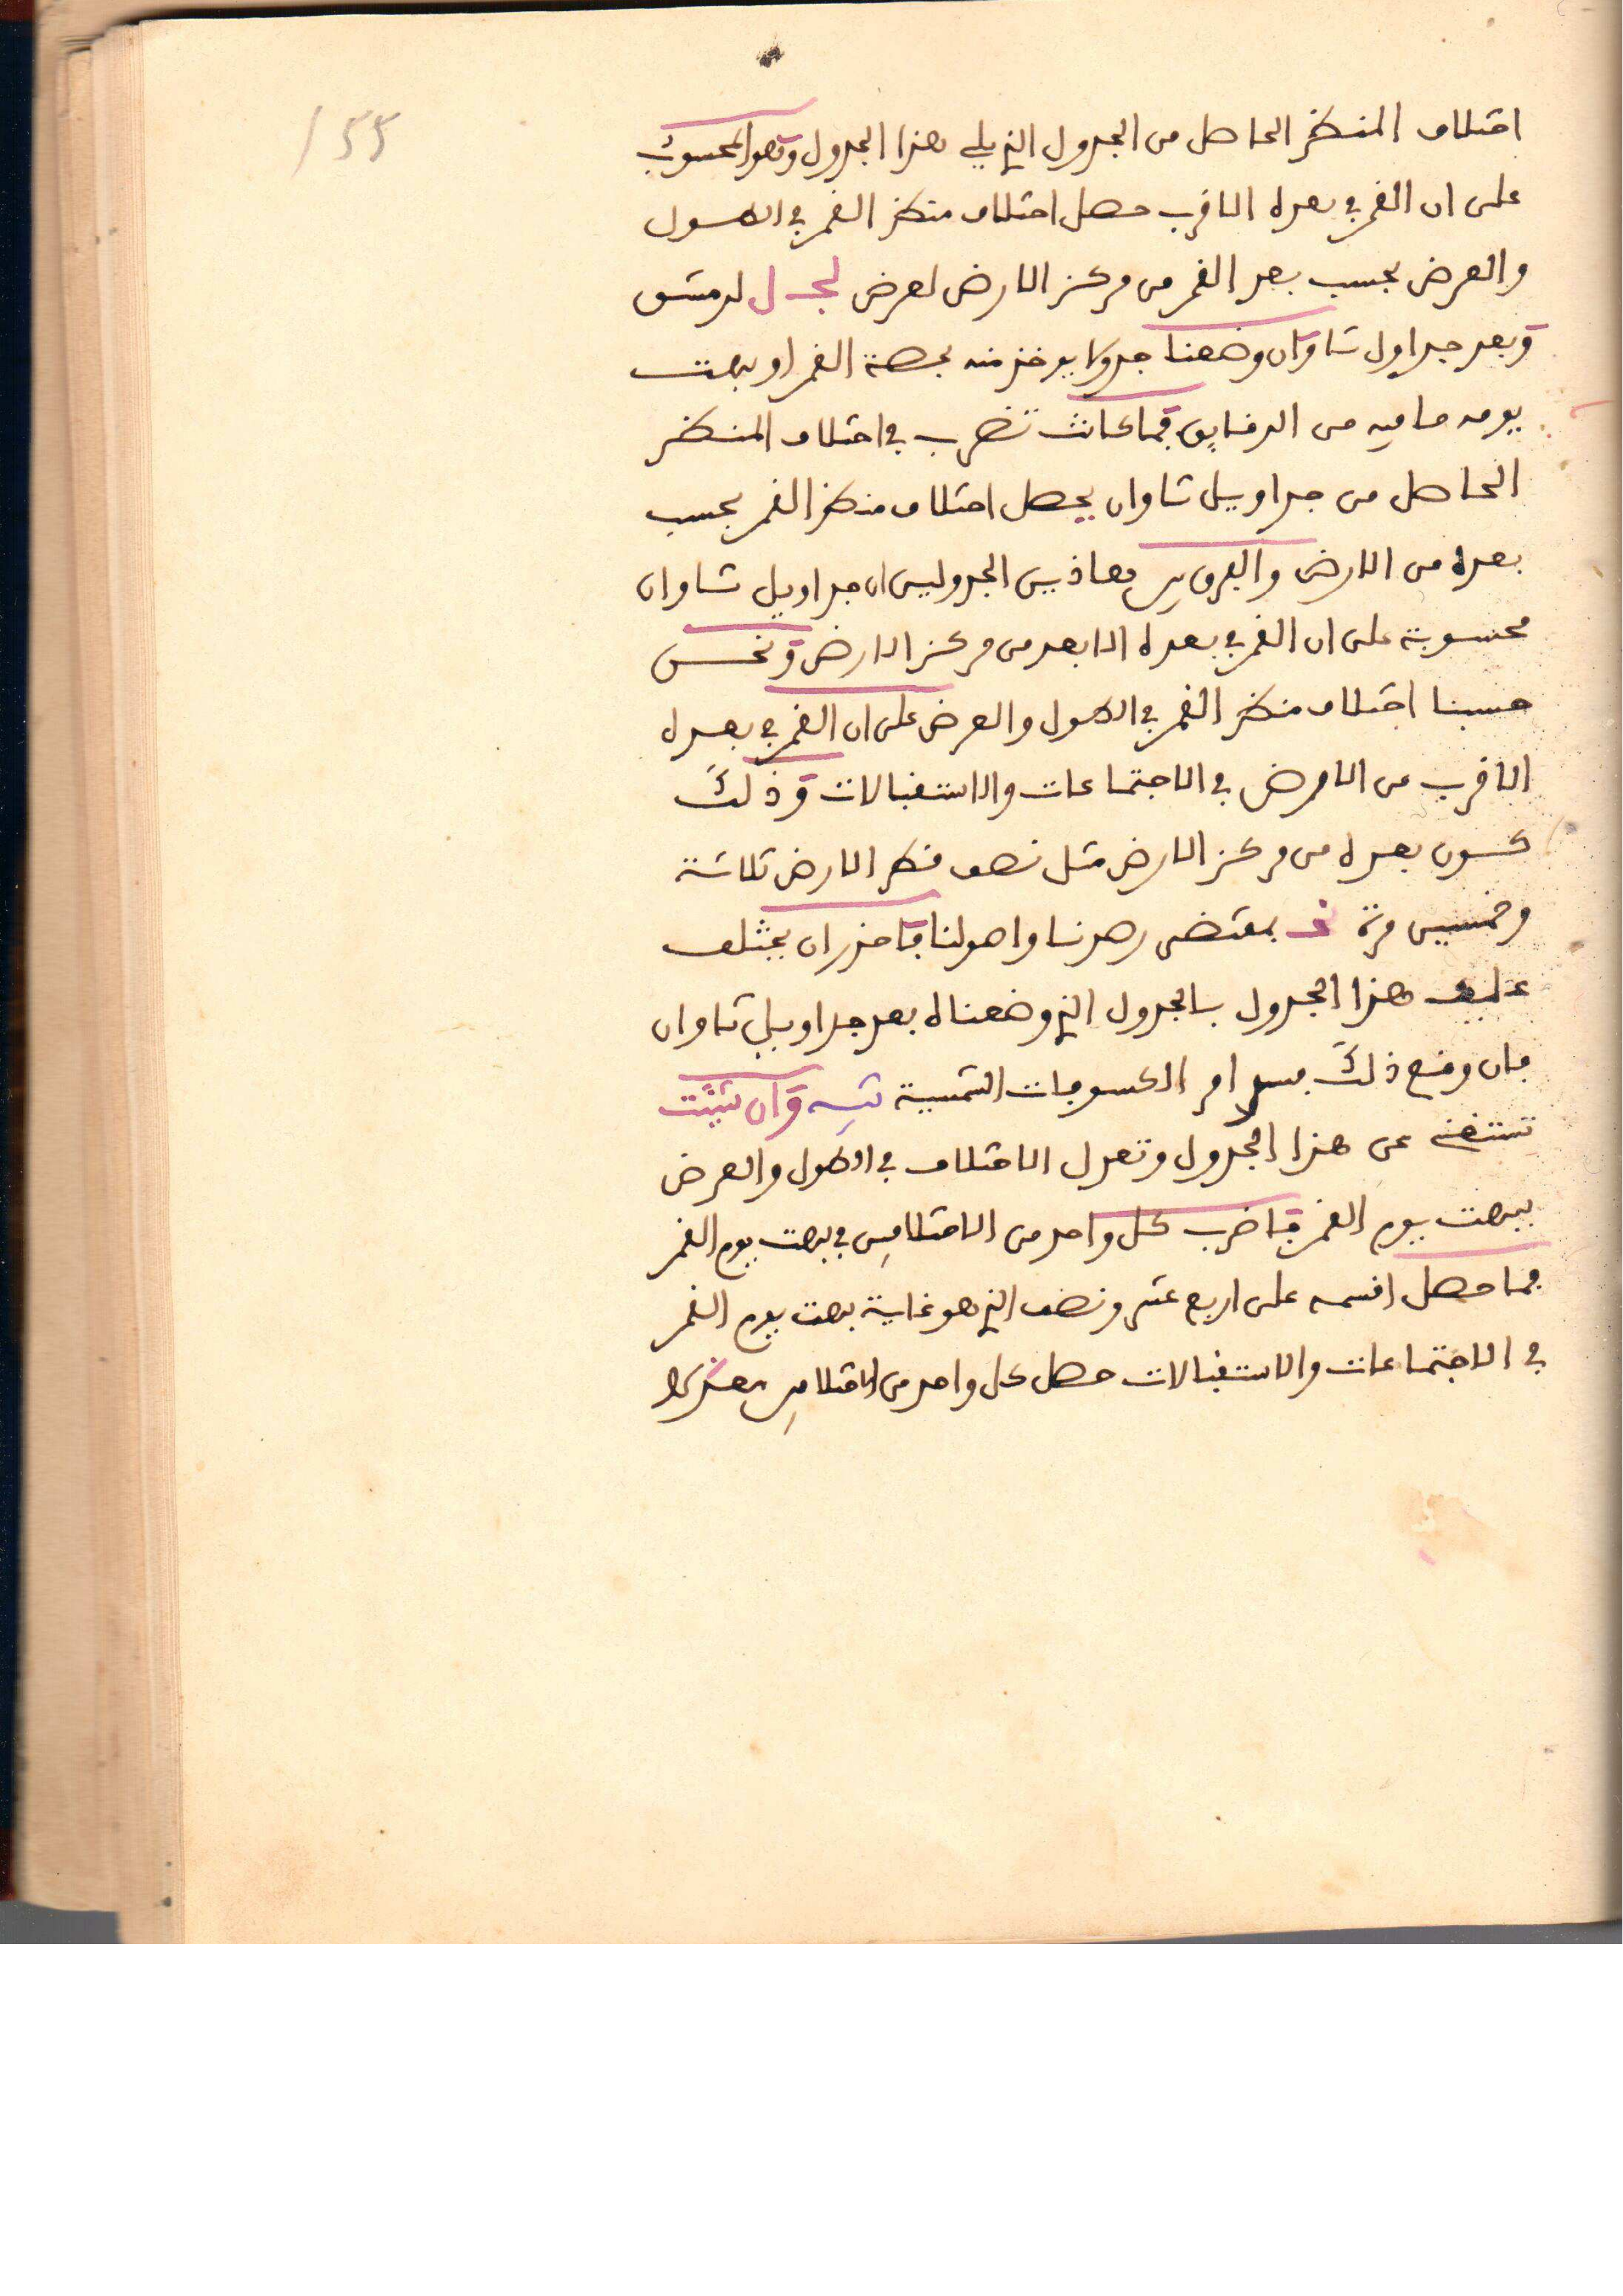 155
اختلاف المنظر الحاصل من الجدول الذي يلي هذا الجدول وهو المحسوب
على ان القمر في بعده الاقرب حصل اختلاف منظر القمر في الطول
والعرض بحسب بعد القمر من مركز الارض لعرض لجـ ل لدمشق
وبعد جداول ثاوان وضعنا جدولا يوخذ منه بحصة القمر او ببهت
يومه ما فيه من الدقايق فما كانت تضرب في اختلاف المنظر
الحاصل من جداويل ثاوان يحصل اختلاف منظر القمر بحسب
بعده من الارض والفرق بين هاذين الجدولين ان جداويل ثاوان
محسوبة على ان القمر في بعده الابعد من مركز الارض ونحن
حسبنا اختلاف منظر القمر في الطول والعرض على ان القمر في بعده
الاقرب من الارض في الاجتماعات والاستقبالات وذلك
كون بعده من مركز الارض مثل نصف قطر الارض ثلاثة
وخمسين مرة نجـ بمقتضى رصدنا واصولنا فاحذر ان يختلف
عليك هذا الجدول بالجدول الذي وضعناه بعد جداويل ثاوان
فان وقع ذلك فسد امر الكسوفات الشمسية تنبيه وان شئت
تستغني عن هذا الجدول وتعدل الاختلاف في الطول والعرض
ببهت يوم القمر فاضرب كل واحد من الاختلافين في بهت يوم القمر
فما حصل اقسمه على اربع عشر ونصف الذي هو غاية بهت يوم القمر
في الاجتماعات والاستقبالات حصل كل واحد من الاختلافين معدلا